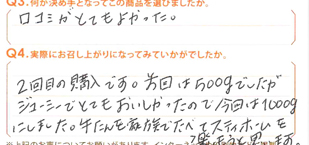 Q3.何が決め手となってこの商品を選びましたか。
口コミがとてもよかった。
Q4.実際にお召し上がりになってみていかがでしたか。
2回目の購入です。前回は500gでしたが
ジューシーでとてもおいしかったので今回は1000g
にしました。牛たんを家族でたべてステイホームを
楽もうと思います。